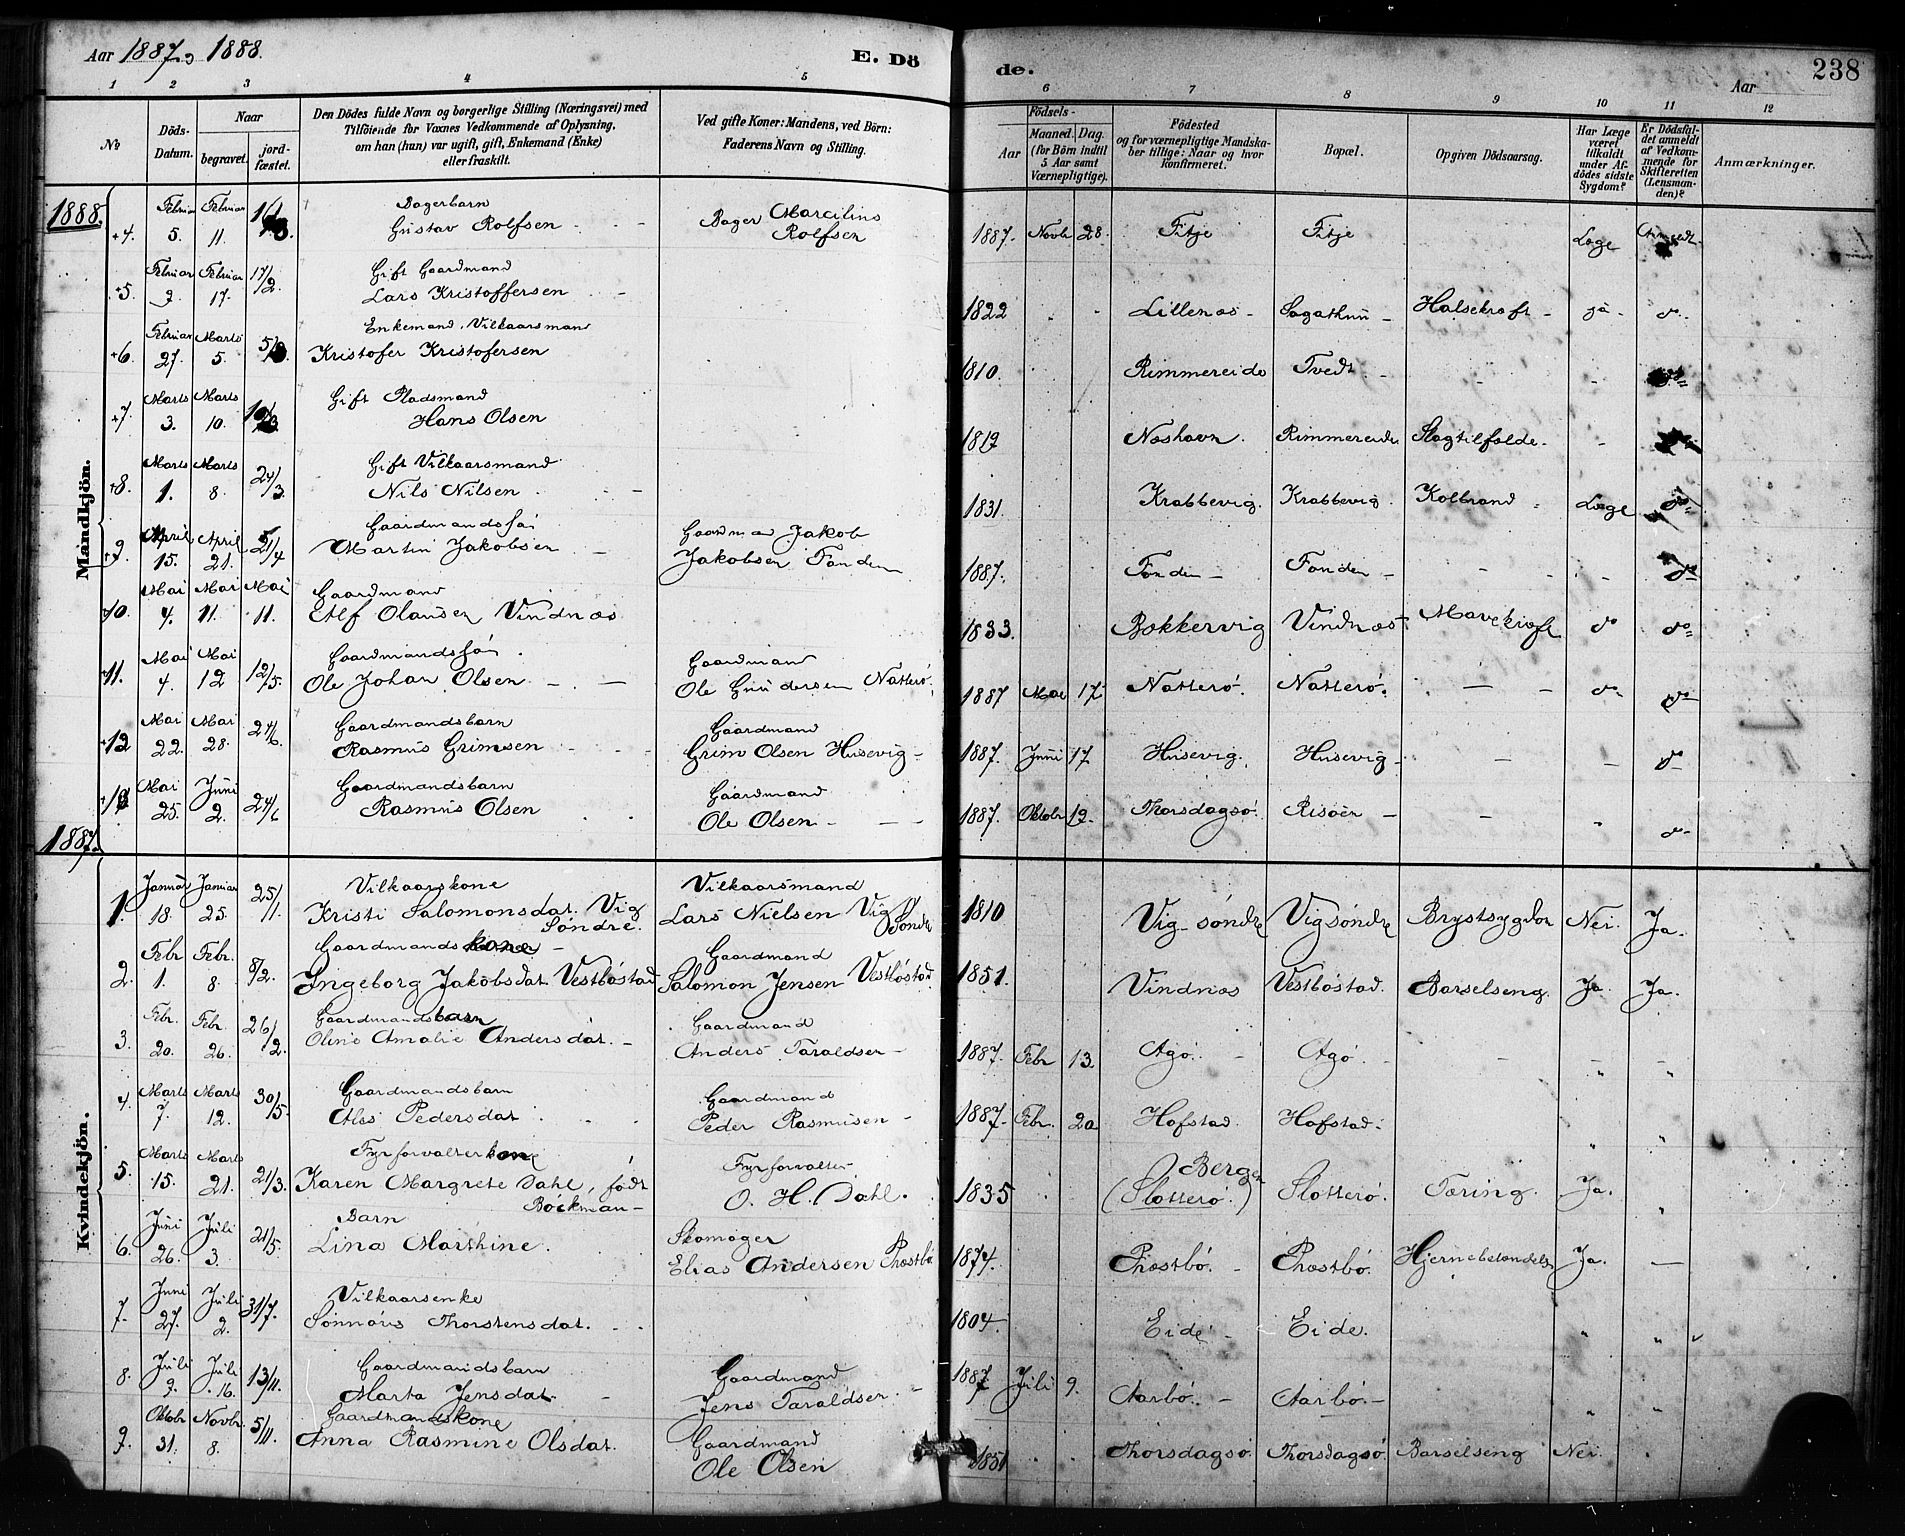 Aar 1887 og 1888.
E. Dö
de.
Aar
238
1 2 3 4 5 6 7 8 9 10 11 12
No
Döds-Datum.
Naar
begravet.
jord-fæstet.
Den Dödes fulde Navn og borgerlige Stilling (Næringsvei) med
Tilföiende for Voxnes Vedkommende af Oplysning,
om han (hun) var ugift, gift, Enkemand (Enke)
eller fraskilt.
Ved gifte Koner: Mandens, ved Börn:
Faderens Navn og Stilling.
Födsels-
Aar
Maaned. Dag.
(for Börn indtil
5 Aar samt
Værnepligtige).
Födested
og for værnepligtige Mandska-
ber tillige: Naar og hvor
konfirmeret.
Bopæl.
Opgiven Dödsaarsag.
Har Læge
været
tilkaldt
under Af-
dödes sidste
Sygdom?
Er Dödsfal-
det anmeldt
af Vedkom-
mende for
Skifteretten
(Lensman-
den)?
Anmærkninger.
Mandkjön.
1888.
4. Februar 5. Februar 11. Bagerbarn Gustav Rolfsen Bager Marcilius Rolfsen 1887. Novbr 28. Fitje Fitje Læge Anmeldt
5. Februar 9. Februar 17. 17/2. Gift Gaardmand Lars Kristoffersen 1822 Lillenæs Sagathun Halsekræft ja do
6. Februar 27. Marts 5. Enkemand, Vilkaarsmand Kristofer Kristofersen 1810. Rimmereide Tvedt
7. Marts 3. Marts 10. Gift Pladsmand Hans Olsen 1819 Næshavn. Rimmereide Slagtilfælde
8. Marts 1. Marts 8. 24/3. Gift Vilkaarsmand Nils Nilsen 1831. Krabbevig. Krabbevig. Kolbrand Læge do
9. April 15. April 21. 21/4 Gaardmandssøn Martin Jakobsen Gaardmand Jakob Jakobsen Fonden 1887. Fonden Fonden do
10. Mai 4. Mai 11. Mai 11. Gaardmand Elef Olausen Vindnæs 1833. Bakkervig Vindnæs Mavekræft do do
11. Mai 4. Mai 12 12/5. Gaardmandssøn Ole Johan Olsen Gaardmand Ole Gundersen Natterø. 1887 Mai 17. Natterø. Natterø. do do
12 Mai 22. Mai 28. 24/6. Gaardmandsbarn Rasmus Grimsen Gaardmand Grim Olsen Husevig 1887. Juni 17 Husevig. Husevig do
13 Mai 25. Juni 2. 24/6 Gaardmandsbarn Rasmus Olsen Gaardmand Ole Olsen 1887. Oktobr 19. Thorsdagsø. Risøen do
1887.
Kvindekjön.
1. Januar 18. Januar 25. 25/1. Vilkaarskone Kristi Salomonsdat. Vig Søndre. Vilkaarsmand Lars Nielsen Vig Søndre 1810 Vig søndre Vig søndre Brystsygdom Nei. Ja.
2. Febr 1. Febr. 8. 8/2. Gaardmandskone Ingeborg Jakobsdat. Vestbøstad Gaardmand Salomon Jensen Vestbøstad. 1851. Vindnæs Vestbøstad. Barselseng. Ja. Ja.
3. Febr. 20. Febr. 26. 26/2. Gaardmandsbarn Oline Amalie Andersdat. Gaardmand Anders Taraldsen 1887. Febr 13. Agø. Agø.
4. Marts 7. Marts 12. 30/5. Gaardmandsbarn Pedersdat. Gaardmand Peder Rasmusen 1887. Febr. 20 Hofstad. Hofstad.
5. Marts 15. Marts 21. 21/3. Fyrforvalterkone Karen Margrete Dahl, født Bøckman Fyrforvalter O. H. Dahl. 1835 Bergen (Slotterø.) Slotterø. Tæring. Ja.
6. Juni 26. Juli 3. 21/5. Barn Lina Marthine. Skomager Elias Andersen Præstbø 1874. Præstbø. Præstbø. Hjernebetændelse Ja.
7. Juni 27. Juli 2. 31/7. Vilkaarsenke Sønnøus Thorstensdat. 1804. Eide Eide.
8. Juli 9. Juli 16. 13/11. Gaardmandsbarn Marta Jensdat. Gaardmand Jens Taraldsen 1887 Juli 9. Aarbø. Aarbø.
9. Oktobr 31. Novbr. 8. 5/11. Gaardmandskone Anna Rasmine Olsdat. Gaardmand Ole Olsen 1851 Thorsdagsø. Thorsdagsø. Barselseng Nei.